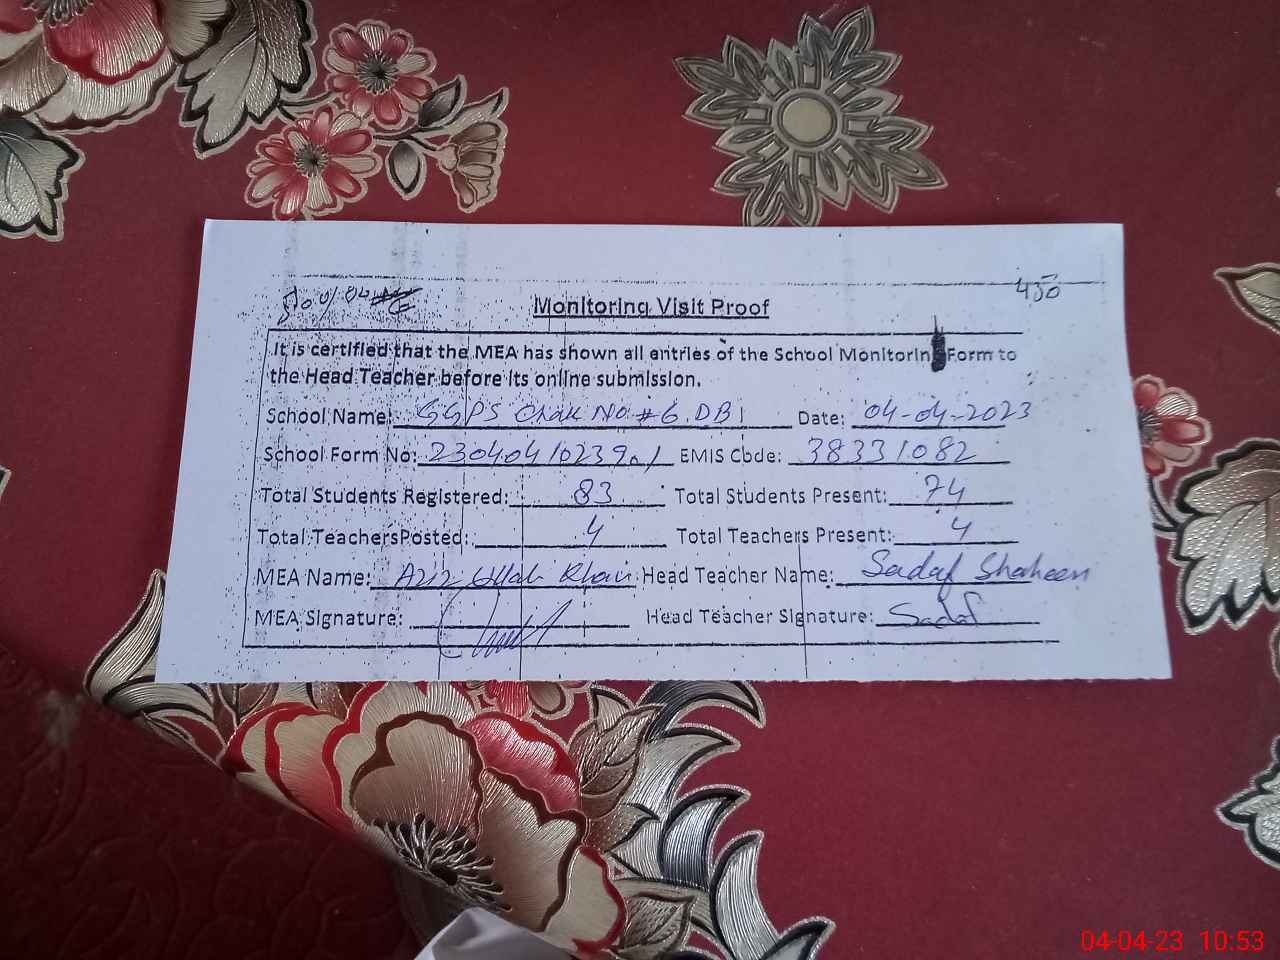 450
Monitoring Visit Proof
It is certified that the MEA has shown all entries of the School Monitoring Form to
the Head Teacher before its online submission.
School Name: GGPS Chak No #6 DB Date: 04-04-2023
School Form No: EMIS Code: 38331082
Total Students Registered: 83 Total Students Present: 74
Total TeachersPosted: 4 Total Teachers Present: 4
MEA Name: Aziz Ullah Khan Head Teacher Name: Sadaf Shaheen
MEA Signature: Head Teacher Signature: Sadaf
04-04-23 10:53